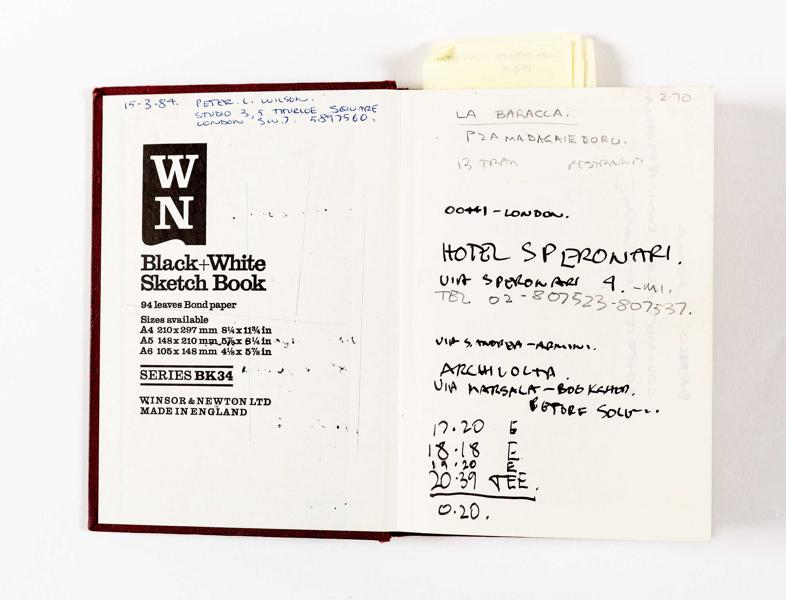 15-3-84. PETER. L. WILSON.
STUDIO 3, 5 THURLOE SQUARE
LONDON SW.7. 5897560.
WN
Black+White
Sketch Book
94 leaves Bond paper
Sizes available
A4 210 x 297 mm 8¼ x 11¾ in
A5 148 x 210 mm 5⅞ x 8¼ in
A6 105 x 148 mm 4⅛ x 5⅞ in
SERIES BK34
WINSOR & NEWTON LTD
MADE IN ENGLAND
2.70
LA BARACCA.
PZA
13 TRAM
00441-LONDON.
HOTEL SPERONARI.
VIA SPERONARI 4. -MI.
TEL 02-807523-807537.
VIA S. ANDREA-ARMINI.
ARCHIVOLTA.
VIA MARSALA-BOOKSHOP.
BEFORE
17.20 E
18.18 E
19.20 E
20.39 TEE.
0.20.